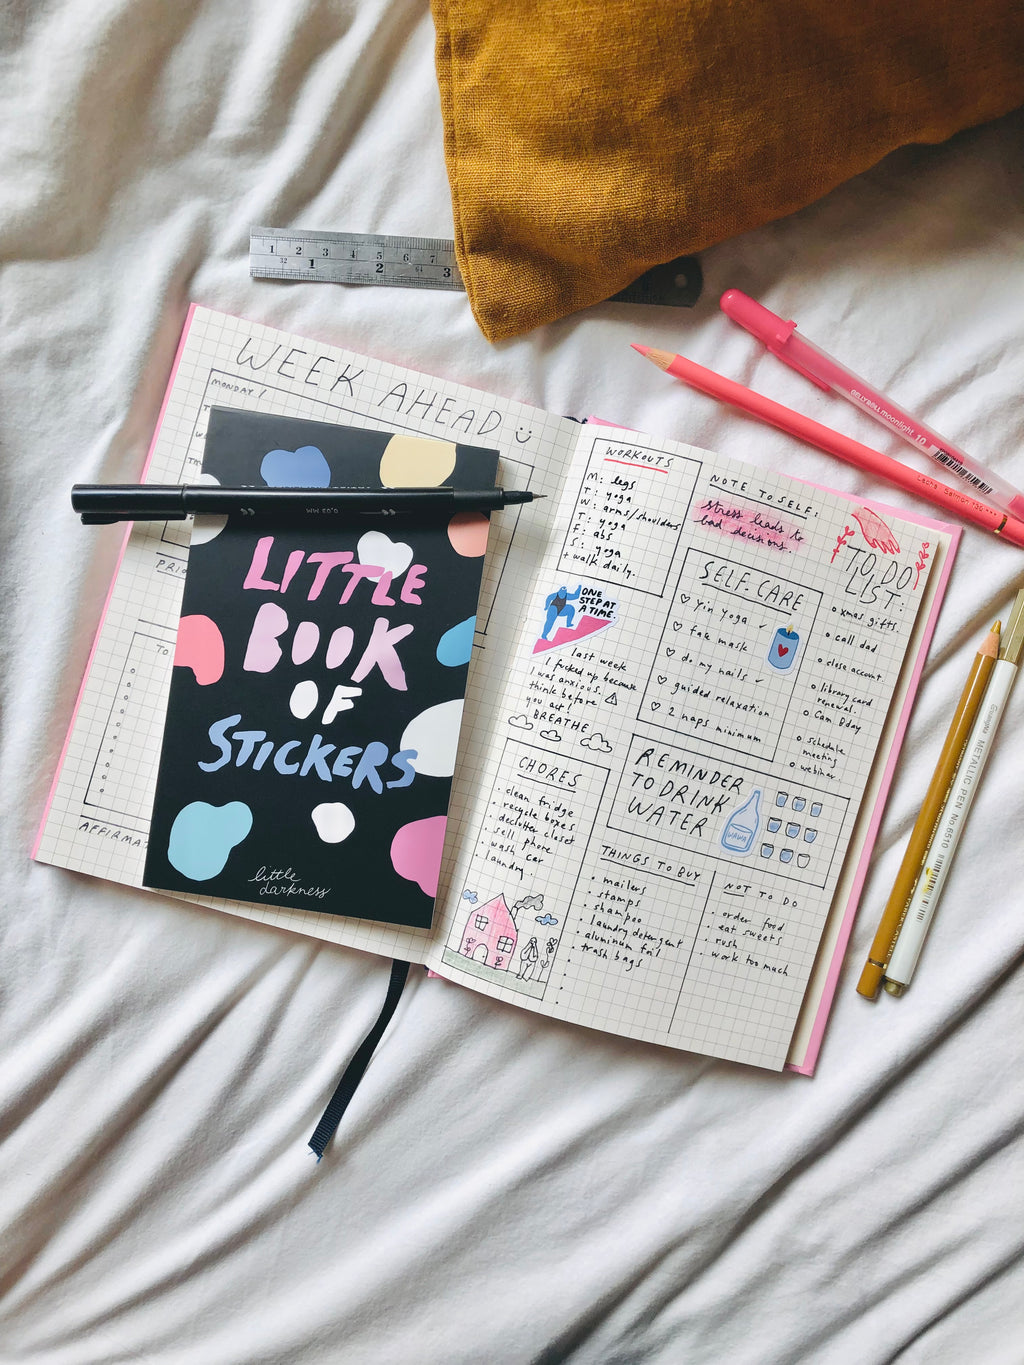 1 2 3 4 5 6 7
32 1 2 64 3
WEEK AHEAD
MONDAY /
T
W
TH
PRIO
TO
AFFIRMAT
0,03 MM
LITTLE
BOOK
OF
STICKERS
little
darkness
WORKOUTS
M: legs
T: yoga
W: arms/shoulders
T: yoga
F: abs
S: yoga
+ walk daily.
ONE
STEP AT
A TIME.
last week
I fucked up because
I was anxious.
think before
you act!
BREATHE
CHORES
• clean fridge
• recycle boxes
• declutter closet
• sell phone
• wash car
• laundry.
NOTE TO SELF:
stress leads to
bad decisions.
SELF-CARE
♡ yin yoga ✓
♡ face mask
♡ do my nails ✓
♡ guided relaxation
♡ 2 naps minimum
REMINDER
TO DRINK
WATER
WAWA
THINGS TO BUY
• mailers
• stamps
• shampoo
• laundry detergent
• aluminum foil
• trash bags
TO DO
LIST:
o xmas gifts.
o call dad
o close account.
o library card
renewal.
o Cam Bday
o schedule
meeting
o webinar.
NOT TO DO
• order food
• eat sweets
• rush
• work too much
GELLY ROLL moonlight 10
METALLIC PEN No.6510